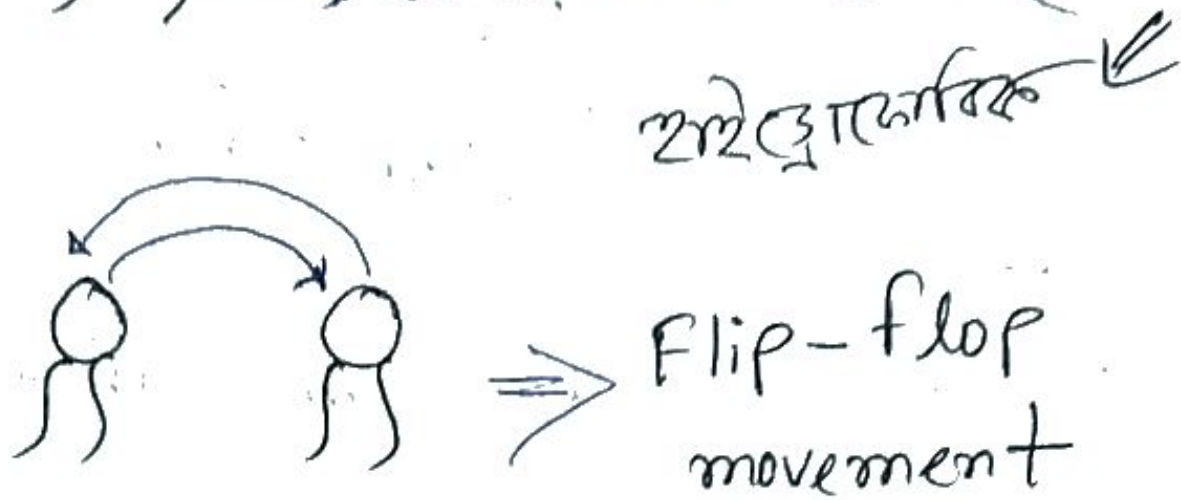 হাইড্রোফোবিক
Flip-flop
movement